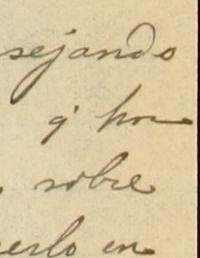 sejando
q' por
sobre
erlo en